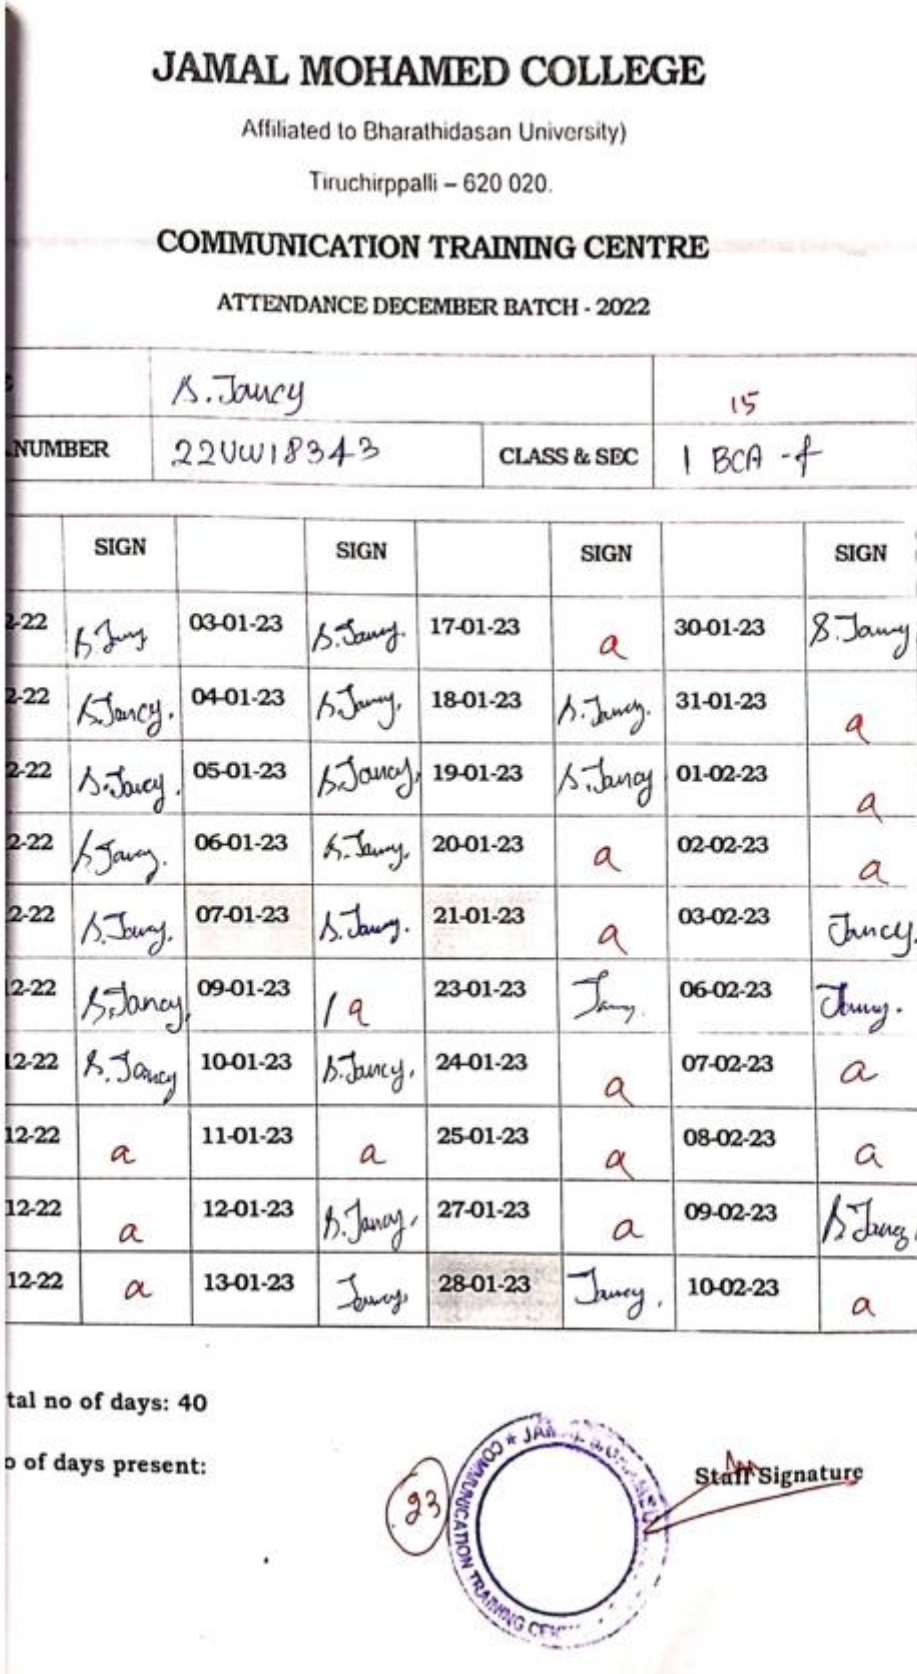 JAMAL MOHAMED COLLEGE
Affiliated to Bharathidasan University)
Tiruchirppalli – 620 020.
COMMUNICATION TRAINING CENTRE
ATTENDANCE DECEMBER BATCH - 2022
S. Jancy 15
NUMBER 22UWI8343 CLASS & SEC I BCA - f
SIGN SIGN SIGN SIGN
2-22 S. Jancy 03-01-23 S. Jancy. 17-01-23 a 30-01-23 S. Jancy
2-22 S. Jancy. 04-01-23 S. Jancy. 18-01-23 S. Jancy. 31-01-23 a
2-22 S. Jancy. 05-01-23 S. Jancy. 19-01-23 S. Jancy 01-02-23 a
2-22 S. Jancy. 06-01-23 S. Jancy. 20-01-23 a 02-02-23 a
2-22 S. Jancy. 07-01-23 S. Jancy. 21-01-23 a 03-02-23 Jancy.
12-22 S. Jancy. 09-01-23 / a 23-01-23 Jancy. 06-02-23 Jancy.
12-22 S. Jancy 10-01-23 S. Jancy. 24-01-23 a 07-02-23 a
12-22 a 11-01-23 a 25-01-23 a 08-02-23 a
12-22 a 12-01-23 S. Jancy. 27-01-23 a 09-02-23 S. Jancy.
12-22 a 13-01-23 Jancy. 28-01-23 Jancy. 10-02-23 a
tal no of days: 40
o of days present: 23
COMMUNICATION TRAINING CEN
Staff Signature